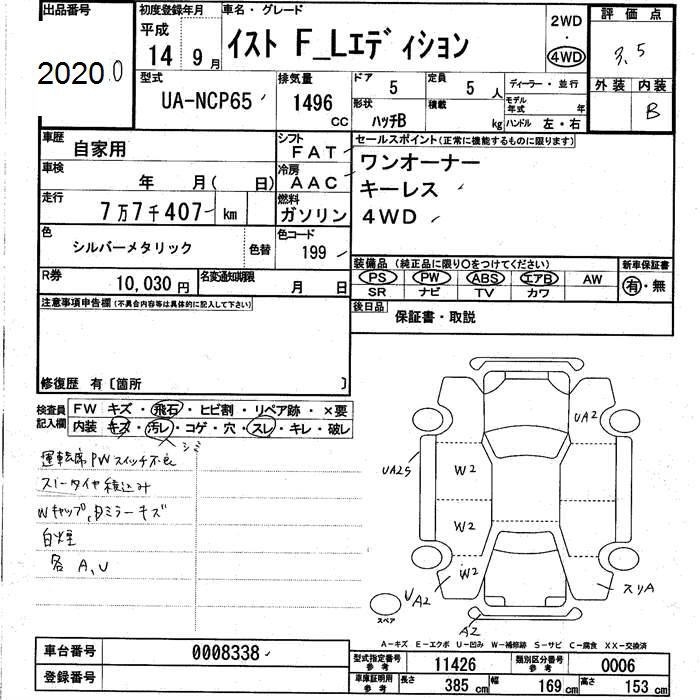 出品番号
20200
初度登録年月
平成
14年 9月
車名・グレード
イスト F_Lエディション
2WD
・
4WD
評価点
3.5
外装 内装
B
型式
UA-NCP65
排気量
1496
CC
ドア
5
定員
5人
形状
ハッチB
積載
kg
ディーラー・並行
モデル年式 年
ハンドル 左・右
車歴
自家用
シフト
FAT
車検
年 月( 日)
冷房
AAC
走行
7万7千407 km
燃料
ガソリン
色
シルバーメタリック
色替
色コード
199
R券
10,030円
名変通知期限
月 日
セールスポイント(正常に機能するものに限ります)
ワンオーナー
キーレス
4WD
装備品(純正品に限り○をつけてください)
PS PW ABS エアB AW
SR ナビ TV カワ
新車保証書
有・無
後日品
保証書・取説
注意事項申告欄(不具合内容等は具体的に記入して下さい)
修復歴 有〔箇所 〕
検査員記入欄
FW キズ・飛石・ヒビ割・リペア跡・×要
内装・キズ・汚レ・コゲ・穴・スレ・キレ・破レ
シミ
運転席PWスイッチ不良
スノータイヤ積込み
Wキャップ、ドミラーキズ
白煙
各 A、U
UA2
UA2S
W2
W2
W2
UA2
スリA
A2
スペア
A-キズ E-エクボ U-凹み W-補修跡 S-サビ C-腐食 XX-交換済
車台番号
0008338
登録番号
型式指定番号
参考
11426
類別区分番号
参考
0006
車庫証明用
参考
長さ 385cm 幅 169cm 高さ 153cm